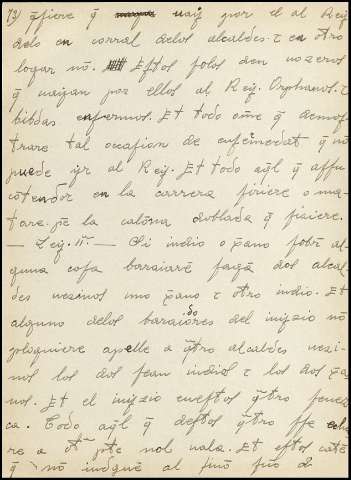 73) q̃fiere q̃ uaij por el al Reij
delo en corral delos alcaldes. τ en otro
logar nõ. Estos solos den uozeros
q̃ uaijan por ellos al Reij. Orphanos. τ
bibdas enfermos. Et todo ome q̃ demos
trare tal occasion de enfermedat q̃ nõ
puede ijr al Reij. Et todo aq̃l q̃ assu
cõtendor en la carrera firiere o ma
tare. pe la calõna doblada q̃ fiziere.
— Leij. IIª. — Si indio o xp̃ano sobr̃ al
guna cosa baraiarẽ fagã dos alcal
des uezinos uno xp̃ano τ otro indio. Et
alguno delos baraiadores del iuijzio nõ
ploguiere apelle a q̃tro alcaldes uezi
nos los dos sean indios τ los dos xp̃a
nos. Et el iuijzio cuestos q̃tro fenez
ca. Todo aq̃l q̃ destos q̃tro sse echa
re a otª pte nol uala. Et estos catẽ
q̃ nõ indguẽ al sinõ